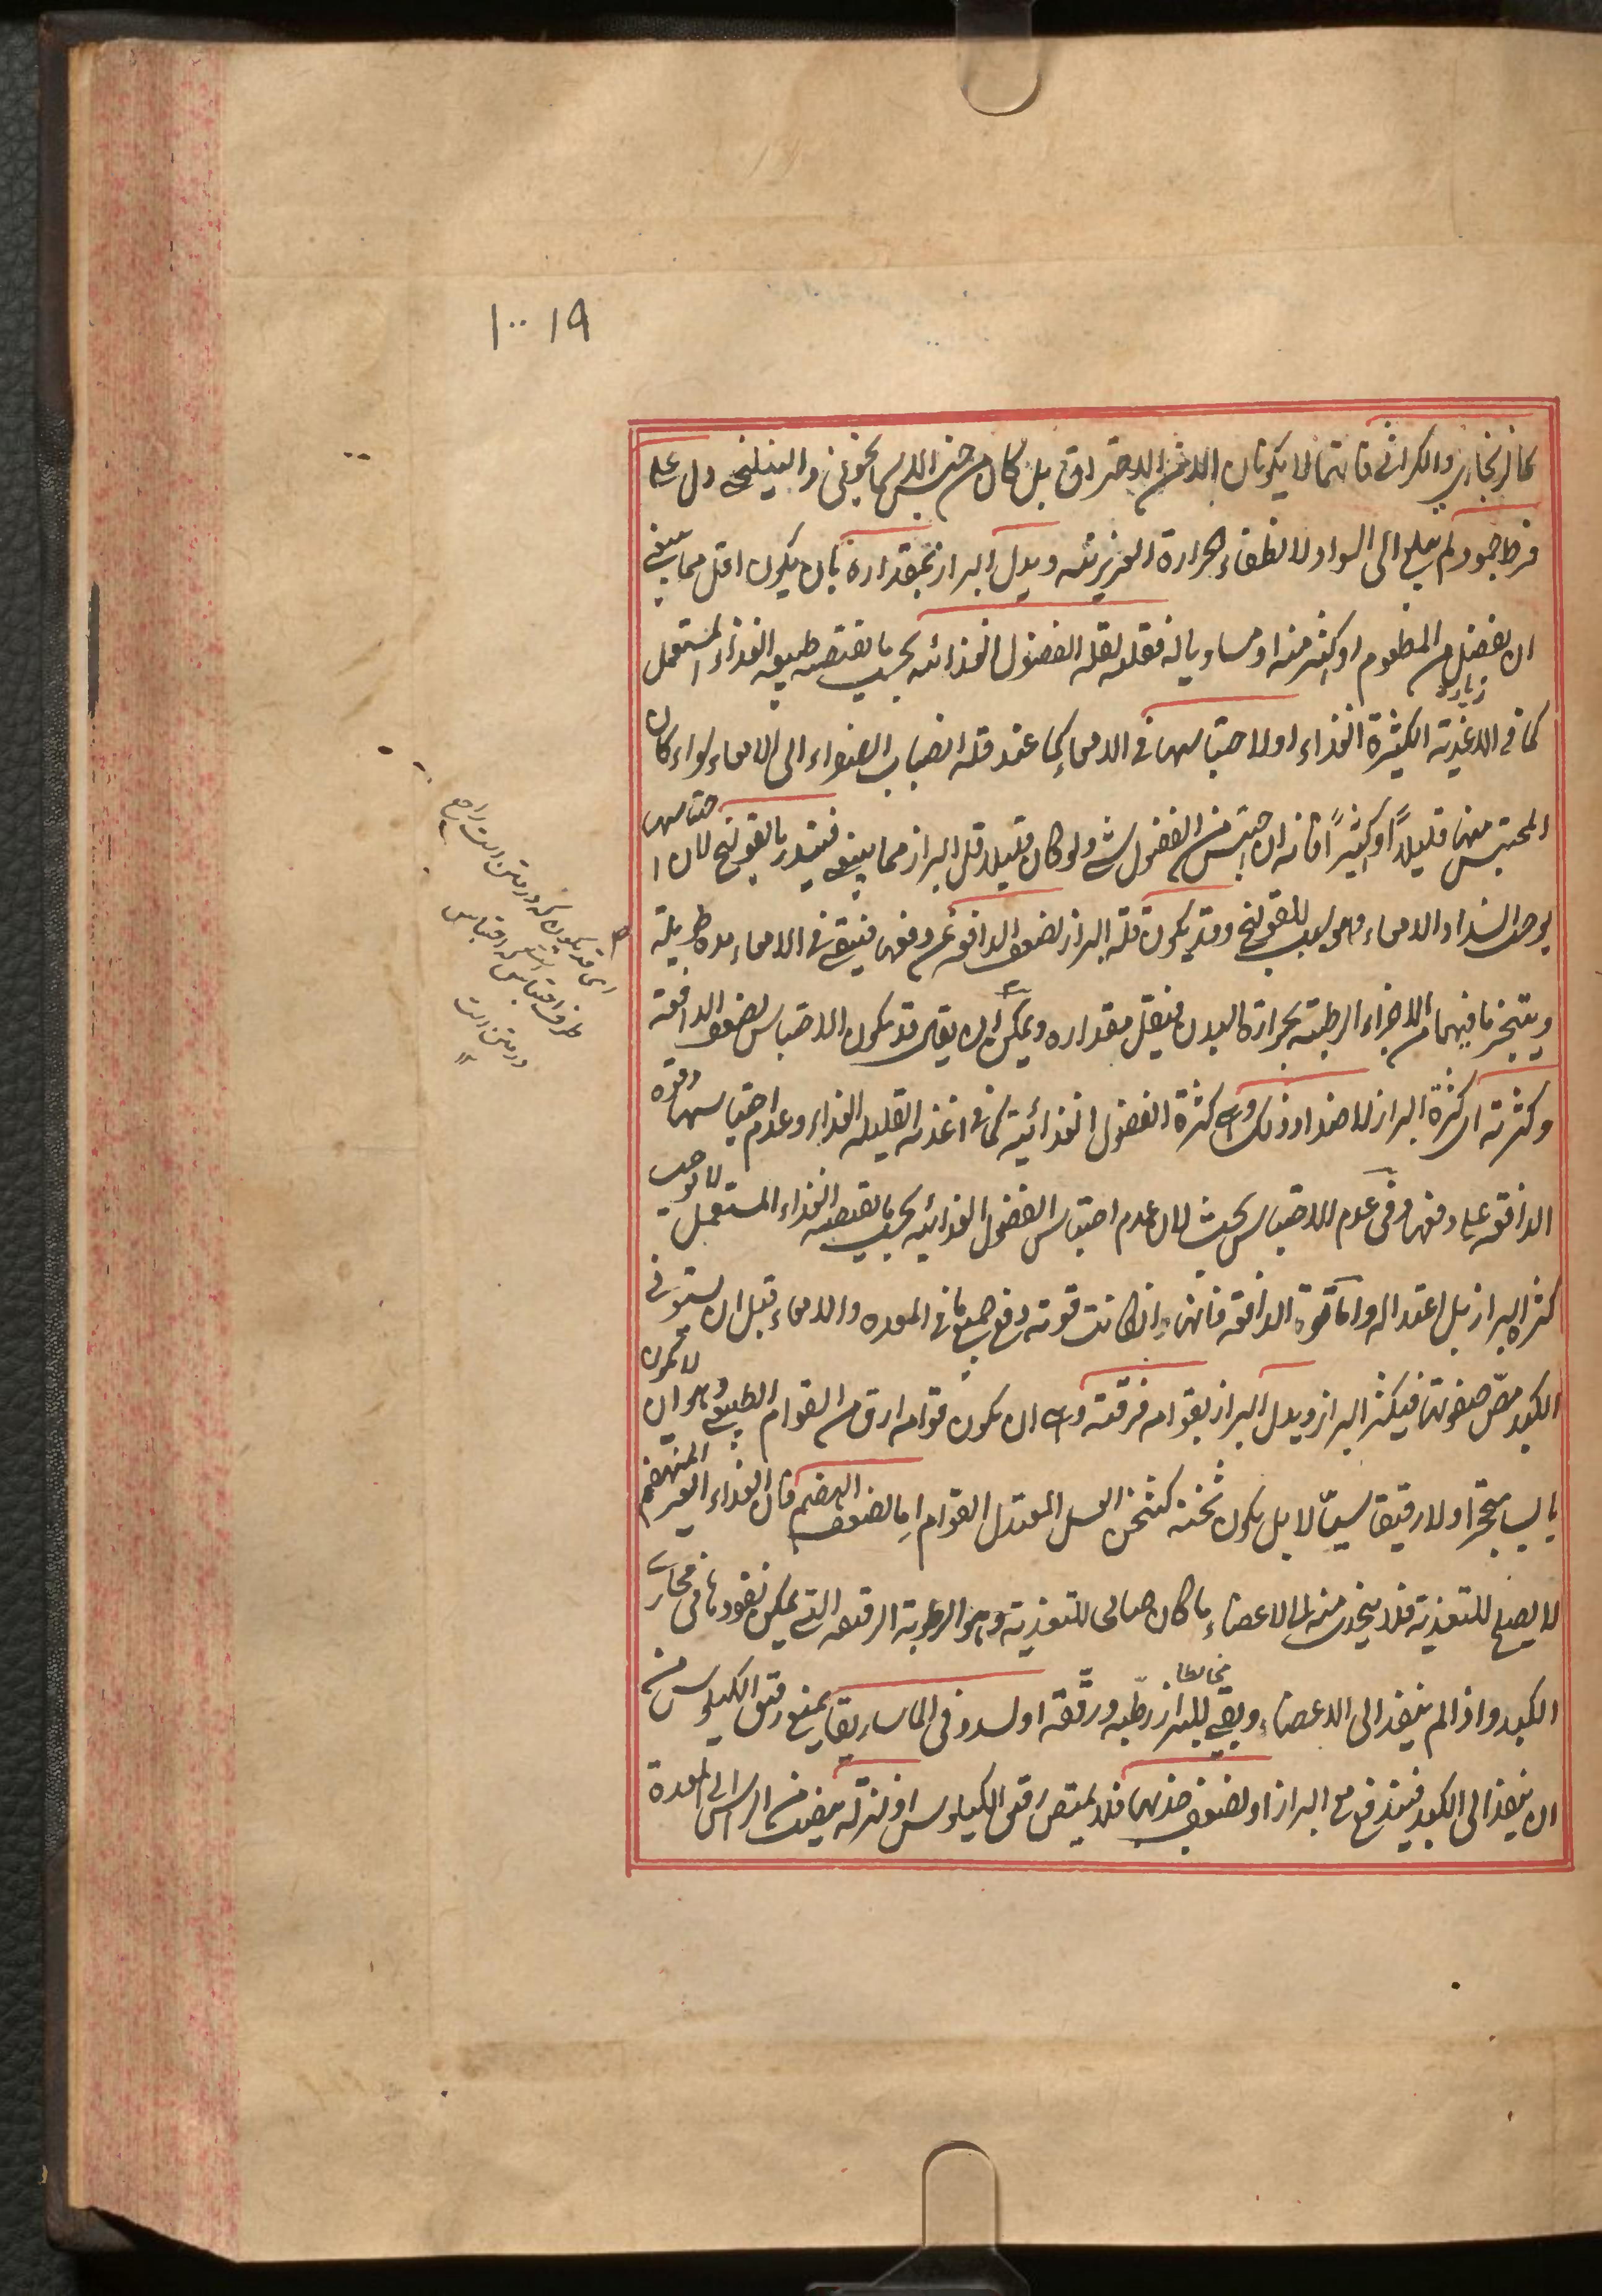 ١٠٠١٩
كالزنجاري والكراثي فانهما لا يكونان الا من الاحتراق بل كان من جنس الاسمانجوني والنيلنجي دل على
فرط جمود لم يبلغ الى السواد ولانطفاء الحرارة الغريزية ويدل البراز بمقداره بان يكون اقل مما ينبغي
ان يفضل من المطعوم او اكثر منه او مساويا له فقلته لقلة الفضول الغذائية بحسب ما يقتضيه طبيعة الغذاء المستعمل
زيادة
كما في الاغذية الكثيرة الغذاء او لاحتباسها في الامعاء كما عند قلة انصباب الصفراء الى الامعاء سواء كان
المحتبس منها قليلاً او كثيراً فانه ان احتبس من الفضول شئ ولو كان قليلا قل البراز مما ينبغي فينذر بالقولنج لان احتباسها
يوجب انسداد الامعاء وهو سبب للقولنج وقد يكون قلة البراز لضعف الدافعة عن دفعها فيبقى في الامعاء مدة طويلة
ويتبخر ما فيها من الاجزاء الرطبة بحرارة البدن فيقل مقداره ويمكن ان يقال قد يكون الاحتباس لضعف الدافعة
وكثرته اي كثرة البراز لاضداد ذلك وهي كثرة الفضول الغذائية كما في اغذية القليلة الغذاء وعدم احتباسها وقوة
الدافعة على دفعها وفي عدم الاحتباس بحث لان عدم احتباس الفضول الغذائية بحسب ما يقتضيه الغذاء المستعمل لا يوجب
كثرة البراز بل اعتداله واما قوة الدافعة فانها اذا كانت قوية دفع جميع ما في المعدة والامعاء قبل ان يستوفي
الكبد مص صفوتها فيكثر البراز ويدل البراز بقوامه فرقته وهي ان يكون قوامه ارق من القوام الطبيعي وهو ان لا يكون
يابسا متحجرا ولا رقيقا سيّالا بل يكون ثخنه كثخن العسل المعتدل القوام اما لضعف الهضم فان الغذاء الغير المنهضم
لا يصلح للتغذية فلا ينجذب منه الى الاعضاء ما كان صالحا للتغذية وهو الرطوبة الرقيقة التي يمكن نفوذها في مجاري
الكبد واذا لم ينفذ الى الاعضاء وبقي مخالطا للبراز رطّبه ورقّقه او لسدد في الماساريقا يمنع رقيق الكيلوس من
ان ينفذ الى الكبد فيندفع مع البراز او لضعف جذبها فلا يمتص رقيق الكيلوس او لنزلة ينصب من الراس الى المعدة
اي قد يكون كه در متن است راجع
طرف احتباس است كه احتباس
در متن است